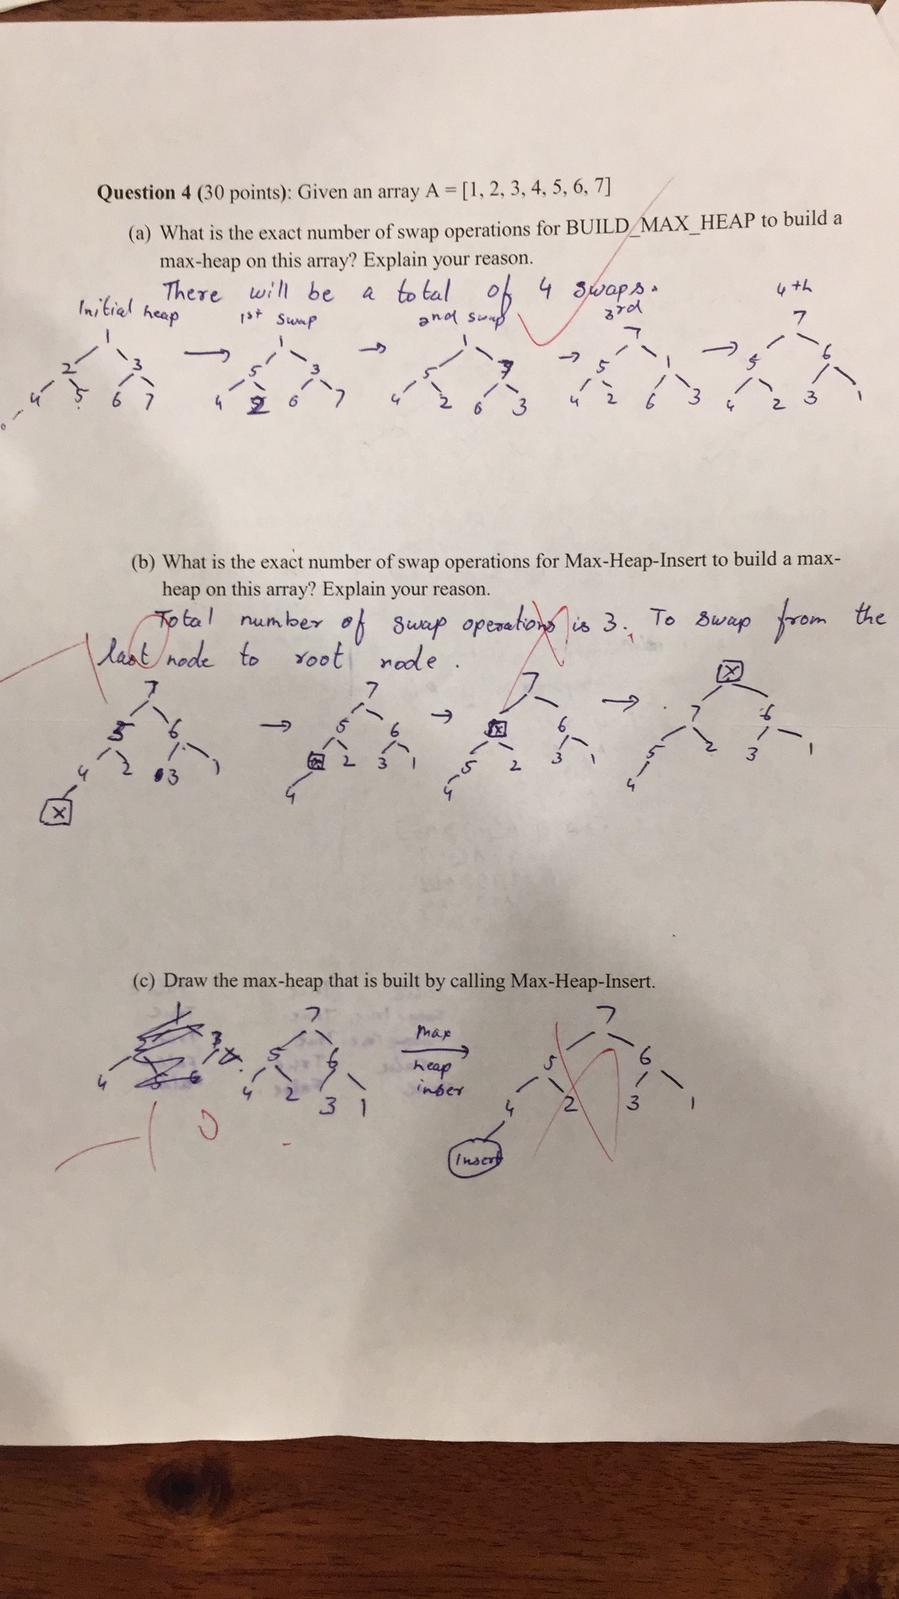 Question 4 (30 points): Given an array A = [1, 2, 3, 4, 5, 6, 7]
(a) What is the exact number of swap operations for BUILD_MAX_HEAP to build a
max-heap on this array? Explain your reason.
There will be a total of 4 swaps.
Initial heap 1st swap 2nd swap 3rd 4th
1 1 1 7 7
2 3 → 5 3 → 5 7 → 5 1 → 5 6
4 5 6 7 4 2 6 7 4 2 6 3 4 2 6 3 4 2 3 1
(b) What is the exact number of swap operations for Max-Heap-Insert to build a max-
heap on this array? Explain your reason.
Total number of swap operations is 3. To swap from the
last node to root node.
7 7 7 X
5 6 → 5 6 → X 6 → 7 6
4 2 3 1 2 3 1 5 2 3 1 5 2 3 1
X 4 4 4
(c) Draw the max-heap that is built by calling Max-Heap-Insert.
7 max 7
5 6 → 5 6
4 2 3 1 heap 4 2 3 1
inser Insert
-10